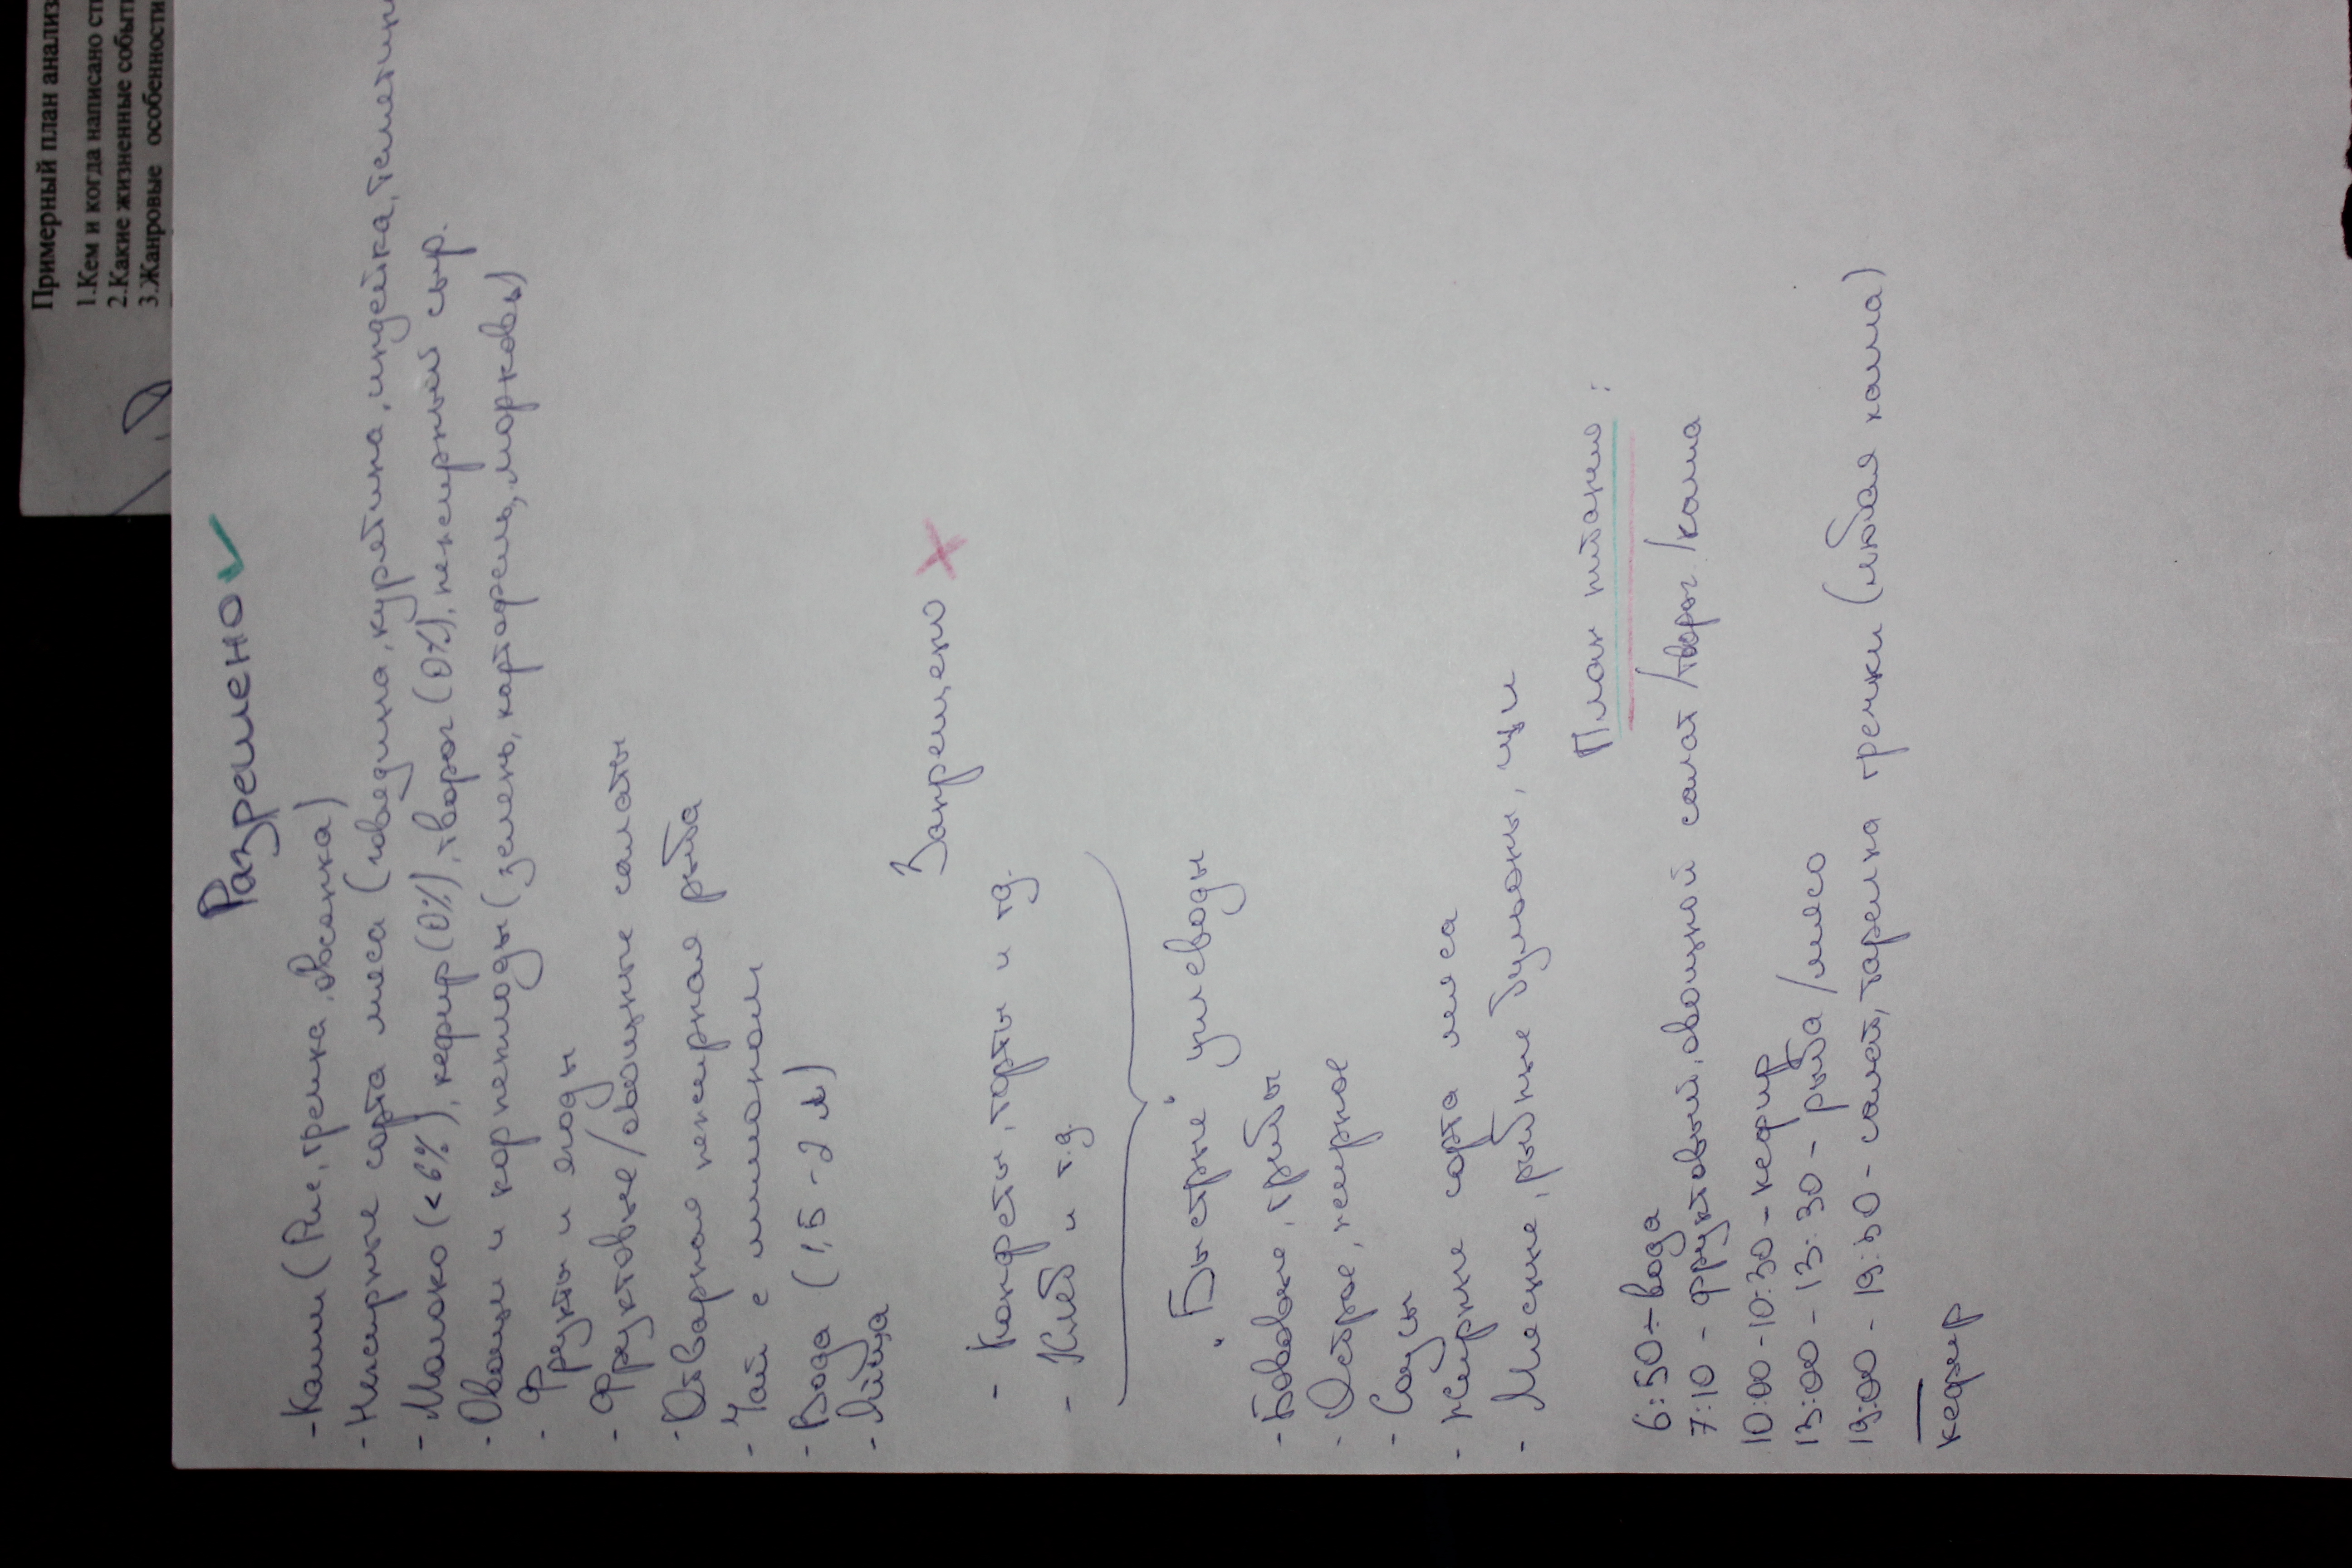 Примерный план анализ
1.Кем и когда написано ст
2.Какие жизненные событ
3.Жанровые особенности
Разрешено ✓
- Каши (Рис, гречка, овсянка)
- Нежирные сорта мяса (говядина, курятина, индейка, телятин
- Молоко (<6%), кефир (0%), творог (0%), нежирный сыр.
- Овощи и корнеплоды (зелень, картофель, морковь)
- Фрукты и ягоды
- Фруктовые/овощные салаты
- Отварная нежирная рыба
- Чай с лимоном
- Вода (1,5 - 2 л)
- Яйца
Запрещено ×
- Конфеты, торты и тд.
- Хлеб и т.д.
"Быстрые" углеводы
- Бобовые, грибы
- Острое, жирное
- Соусы
- Жирные сорта мяса
- Мясные, рыбные бульоны, щи
План питание:
6:50 - вода
7:10 - фруктовый, овощной салат /творог /каша
10:00 - 10:30 - кефир
13:00 - 13:30 - рыба /мясо
19:00 - 19:30 - салат, тарелка гречки (любая каша)
кефир